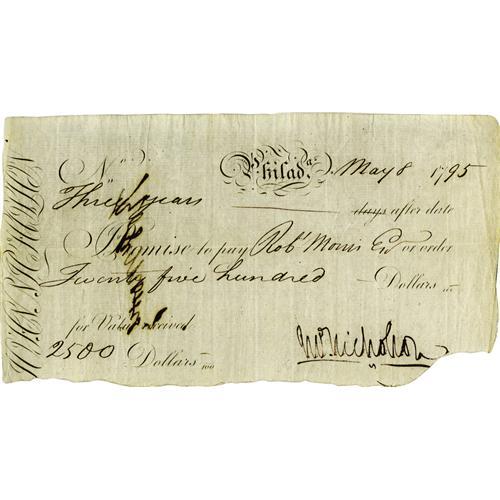 No
Philada. May 8 1795
Three years days after date
I Promise to pay Robt Morris Esqr or order
Twenty five hundred Dollars 100
for Value received
2500 Dollars 100
Jno Nicholson
JOHN NICHOLSON